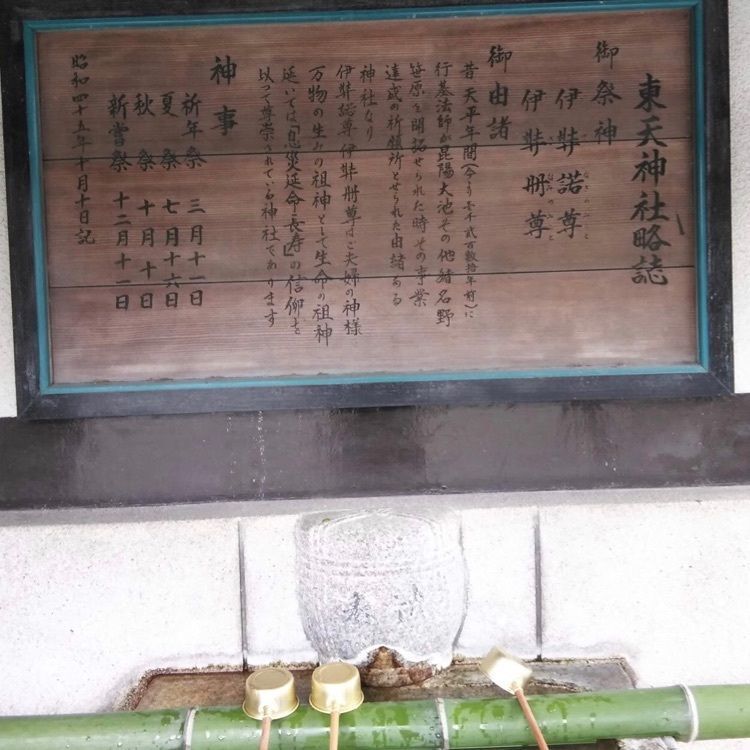 東天神社略誌
御祭神
伊弉諾尊
伊弉冊尊
御由諸
昔天平年間(今より壱千弐百数拾年前)に
行基法師が昆陽大池その他猪名野
笹原を開拓せられた時その事業
達成の祈願所とせられた由緒ある
神社なり
伊弉諾尊伊弉冊尊はご夫婦の神様
万物の生みの祖神として生命の祖神
延いては「息災延命と長寿」の信仰を
以つて尊崇されている神社であります
神事
祈年祭 三月十一日
夏祭 七月十六日
秋祭 十月十日
新嘗祭 十二月十一日
昭和四十五年十月十日記